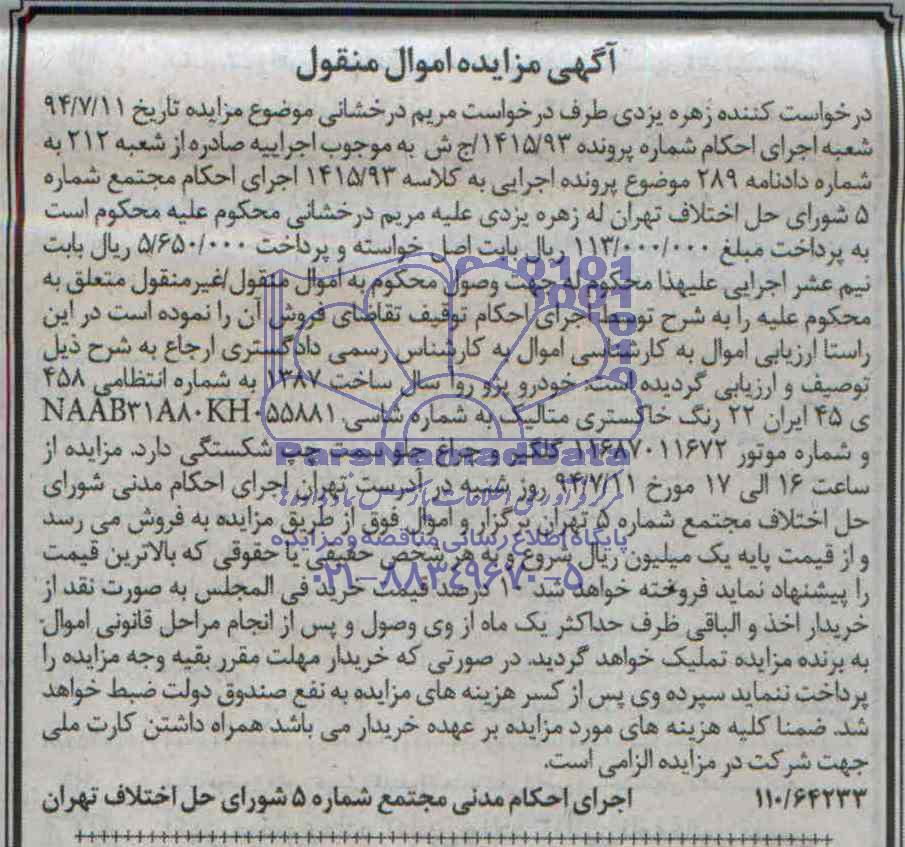 آگهی مزایده اموال منقول
درخواست کننده زهره یزدی طرف درخواست مریم درخشانی موضوع مزایده تاریخ ۹۴/۷/۱۱
شعبه اجرای احکام شماره پرونده ۱۴۱۵/۹۳/ج ش به موجب اجراییه صادره از شعبه ۲۱۲ به
شماره دادنامه ۲۸۹ موضوع پرونده اجرایی به کلاسه ۱۴۱۵/۹۳ اجرای احکام مجتمع شماره
۵ شورای حل اختلاف تهران له زهره یزدی علیه مریم درخشانی محکوم علیه محکوم است
به پرداخت مبلغ ۱۱۳/۰۰۰/۰۰۰ ریال بابت اصل خواسته و پرداخت ۵/۶۵۰/۰۰۰ ریال بابت
نیم عشر اجرایی علیهذا محکوم له جهت وصول محکوم به اموال منقول/غیرمنقول متعلق به
محکوم علیه را به شرح توسط اجرای احکام توقیف تقاضای فروش آن را نموده است در این
راستا ارزیابی اموال به کارشناسی اموال به کارشناس رسمی دادگستری ارجاع به شرح ذیل
توصیف و ارزیابی گردیده است: خودرو پژو روآ سال ساخت ۱۳۸۷ به شماره انتظامی ۴۵۸
ی ۴۵ ایران ۲۲ رنگ خاکستری متالیک به شماره شاسی NAAB۳۱A۸۰KH۰۵۵۸۸۱
و شماره موتور ۱۱۶۸۷۰۱۱۶۷۲ گلگیر و چراغ جلو سمت چپ شکستگی دارد. مزایده از
ساعت ۱۶ الی ۱۷ مورخ ۹۴/۷/۱۱ روز شنبه در آدرست تهران اجرای احکام مدنی شورای
حل اختلاف مجتمع شماره ۵ تهران برگزار و اموال فوق از طریق مزایده به فروش می رسد
و از قیمت پایه یک میلیون ریال شروع و به هر شخص حقیقی یا حقوقی که بالاترین قیمت
را پیشنهاد نماید فروخته خواهد شد ۱۰ درصد قیمت خرید فی المجلس به صورت نقد از
خریدار اخذ و الباقی ظرف حداکثر یک ماه از وی وصول و پس از انجام مراحل قانونی اموال
به برنده مزایده تملیک خواهد گردید. در صورتی که خریدار مهلت مقرر بقیه وجه مزایده را
پرداخت ننماید سپرده وی پس از کسر هزینه های مزایده به نفع صندوق دولت ضبط خواهد
شد. ضمنا کلیه هزینه های مورد مزایده بر عهده خریدار می باشد همراه داشتن کارت ملی
جهت شرکت در مزایده الزامی است.
۱۱۰/۶۴۲۳۳ اجرای احکام مدنی مجتمع شماره ۵ شورای حل اختلاف تهران
ParsNamadData
پایگاه اطلاع رسانی مناقصه و مزایده
۰۲۱-۸۸۳۴۹۶۷۰-۵